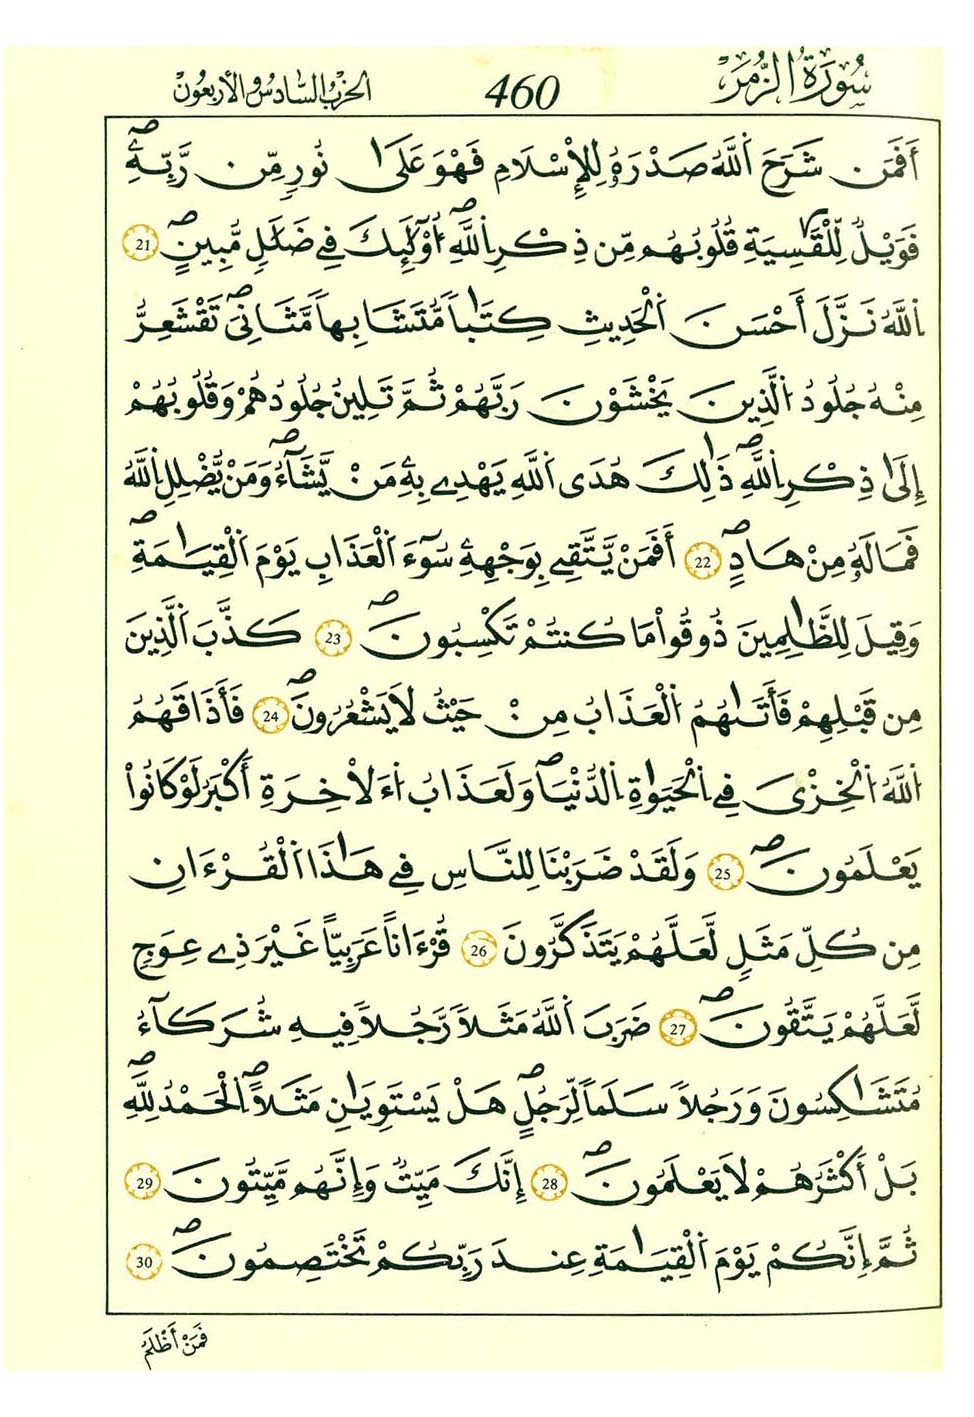 سُورَةُ الزُّمَرِ 460 الحِزْبُ السَّادِسُ وَالْأَرْبَعُونَ
أَفَمَن شَرَحَ اَللَّهُ صَدْرَهُۥ لِلْإِسْلَٰمِ فَهْوَ عَلَىٰ نُورٖ مِّن رَّبِّهِۦۖ
فَوَيْلٞ لِّلْقَٰسِيَةِ قُلُوبُهُم مِّن ذِكْرِ اِللَّهِۖ أُوْلَٰٓئِكَ فِے ضَلَٰلٖ مُّبِينٍۖ 21
اِللَّهُ نَزَّلَ أَحْسَنَ اَلْحَدِيثِ كِتَٰباٗ مُّتَشَٰبِهاٗ مَّثَانِيَۖ تَقْشَعِرُّ
مِنْهُ جُلُودُ اُلَّذِينَ يَخْشَوْنَ رَبَّهُمْ ثُمَّ تَلِينُ جُلُودُهُمْ وَقُلُوبُهُمْ
إِلَىٰ ذِكْرِ اِللَّهِۖ ذَٰلِكَ هُدَى اَللَّهِ يَهْدِے بِهِۦ مَنْ يَّشَآءُۖ وَمَنْ يُّضْلِلِ اِللَّهُ
فَمَا لَهُۥ مِنْ هَادٍۖ 22 أَفَمَنْ يَّتَّقِے بِوَجْهِهِۦ سُوٓءَ اَلْعَذَابِ يَوْمَ اَلْقِيَٰمَةِۖ
وَقِيلَ لِلظَّٰلِمِينَ ذُوقُواْ مَا كُنتُمْ تَكْسِبُونَۖ 23 كَذَّبَ اَلَّذِينَ
مِن قَبْلِهِمْ فَأَتَىٰهُمُ اُلْعَذَابُ مِنْ حَيْثُ لَا يَشْعُرُونَۖ 24 فَأَذَاقَهُمُ
اُللَّهُ اُلْخِزْيَ فِے اِلْحَيَوٰةِ اِلدُّنْيَاۖ وَلَعَذَابُ اُءَلْأخِرَةِ أَكْبَرُ لَوْ كَانُواْ
يَعْلَمُونَۖ 25 وَلَقَدْ ضَرَبْنَا لِلنَّاسِ فِے هَٰذَا اَلْقُرْءَانِ
مِن كُلِّ مَثَلٖ لَّعَلَّهُمْ يَتَذَكَّرُونَ 26 قُرْءَاناً عَرَبِيّاً غَيْرَ ذِے عِوَجٖ
لَّعَلَّهُمْ يَتَّقُونَۖ 27 ضَرَبَ اَللَّهُ مَثَلاٗ رَّجُلاٗ فِيهِ شُرَكَآءُ
مُتَشَٰكِسُونَ وَرَجُلاٗ سَلَماٗ لِّرَجُلٍۖ هَلْ يَسْتَوِيَٰنِ مَثَلاًۖ اِلْحَمْدُ لِلَّهِۖ
بَلْ أَكْثَرُهُمْ لَا يَعْلَمُونَۖ 28 إِنَّكَ مَيِّتٞ وَإِنَّهُم مَّيِّتُونَ 29
ثُمَّ إِنَّكُمْ يَوْمَ اَلْقِيَٰمَةِ عِندَ رَبِّكُمْ تَخْتَصِمُونَۖ 30
فَمَنْ أَظْلَمُ